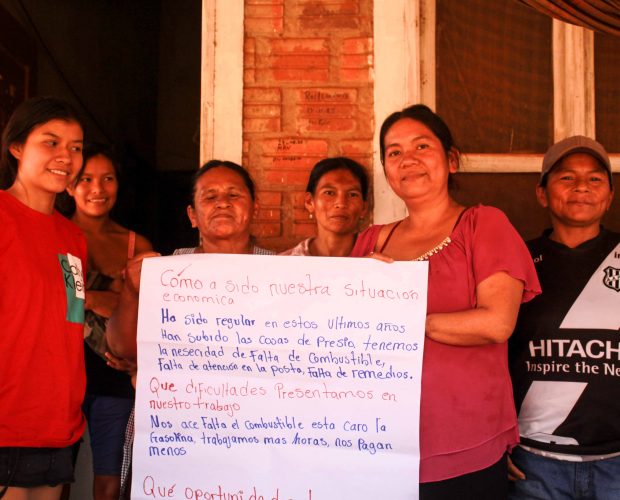 Cómo a sido nuestra situación
economica
Ha sido regular en estos ultimos años
Han subido las cosas de Presio, tenemos
la nesecidad de Falta de combustible,
Falta de atención en la posta, Falta de remedios.
Que dificultades Presentamos en
nuestro trabajo
Nos ace Falta el combustible esta caro la
Gasolina, trabajamos mas horas, nos Pagan
menos
Qué oportunidad
HITACHI
Inspire the Ne